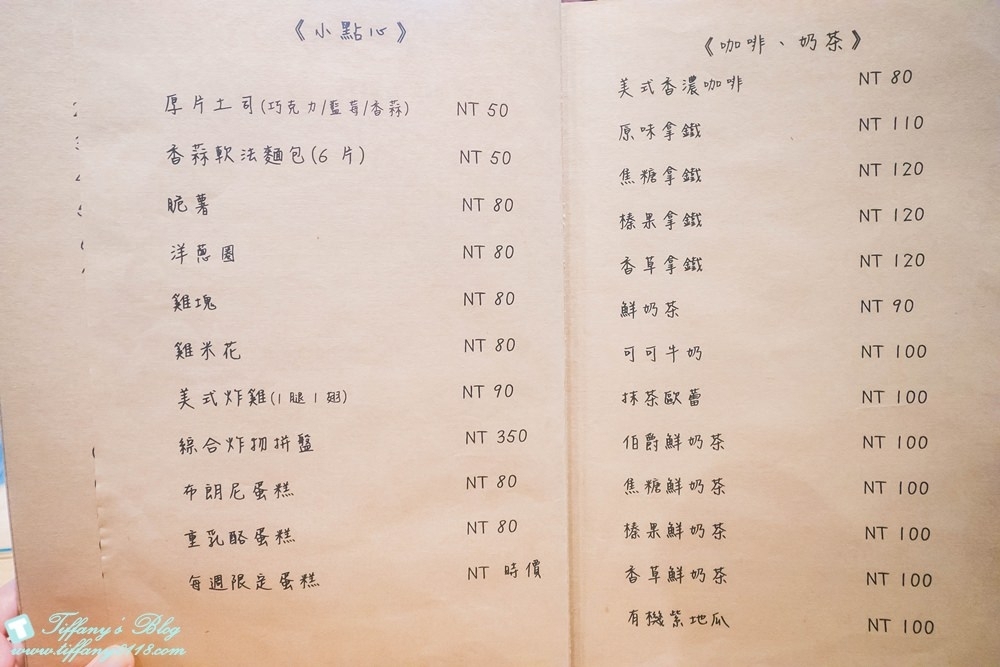 《小點心》
厚片土司(巧克力/藍莓/香蒜) NT 50
香蒜軟法麵包(6 片) NT 50
脆薯 NT 80
洋蔥圈 NT 80
雞塊 NT 80
雞米花 NT 80
美式炸雞(1腿1翅) NT 90
綜合炸物拼盤 NT 350
布朗尼蛋糕 NT 80
重乳酪蛋糕 NT 80
每週限定蛋糕 NT 時價
《咖啡、奶茶》
美式香濃咖啡 NT 80
原味拿鐵 NT 110
焦糖拿鐵 NT 120
榛果拿鐵 NT 120
香草拿鐵 NT 120
鮮奶茶 NT 90
可可牛奶 NT 100
抹茶歐蕾 NT 100
伯爵鮮奶茶 NT 100
焦糖鮮奶茶 NT 100
榛果鮮奶茶 NT 100
香草鮮奶茶 NT 100
有機紫地瓜 NT 100
T Tiffany's Blog